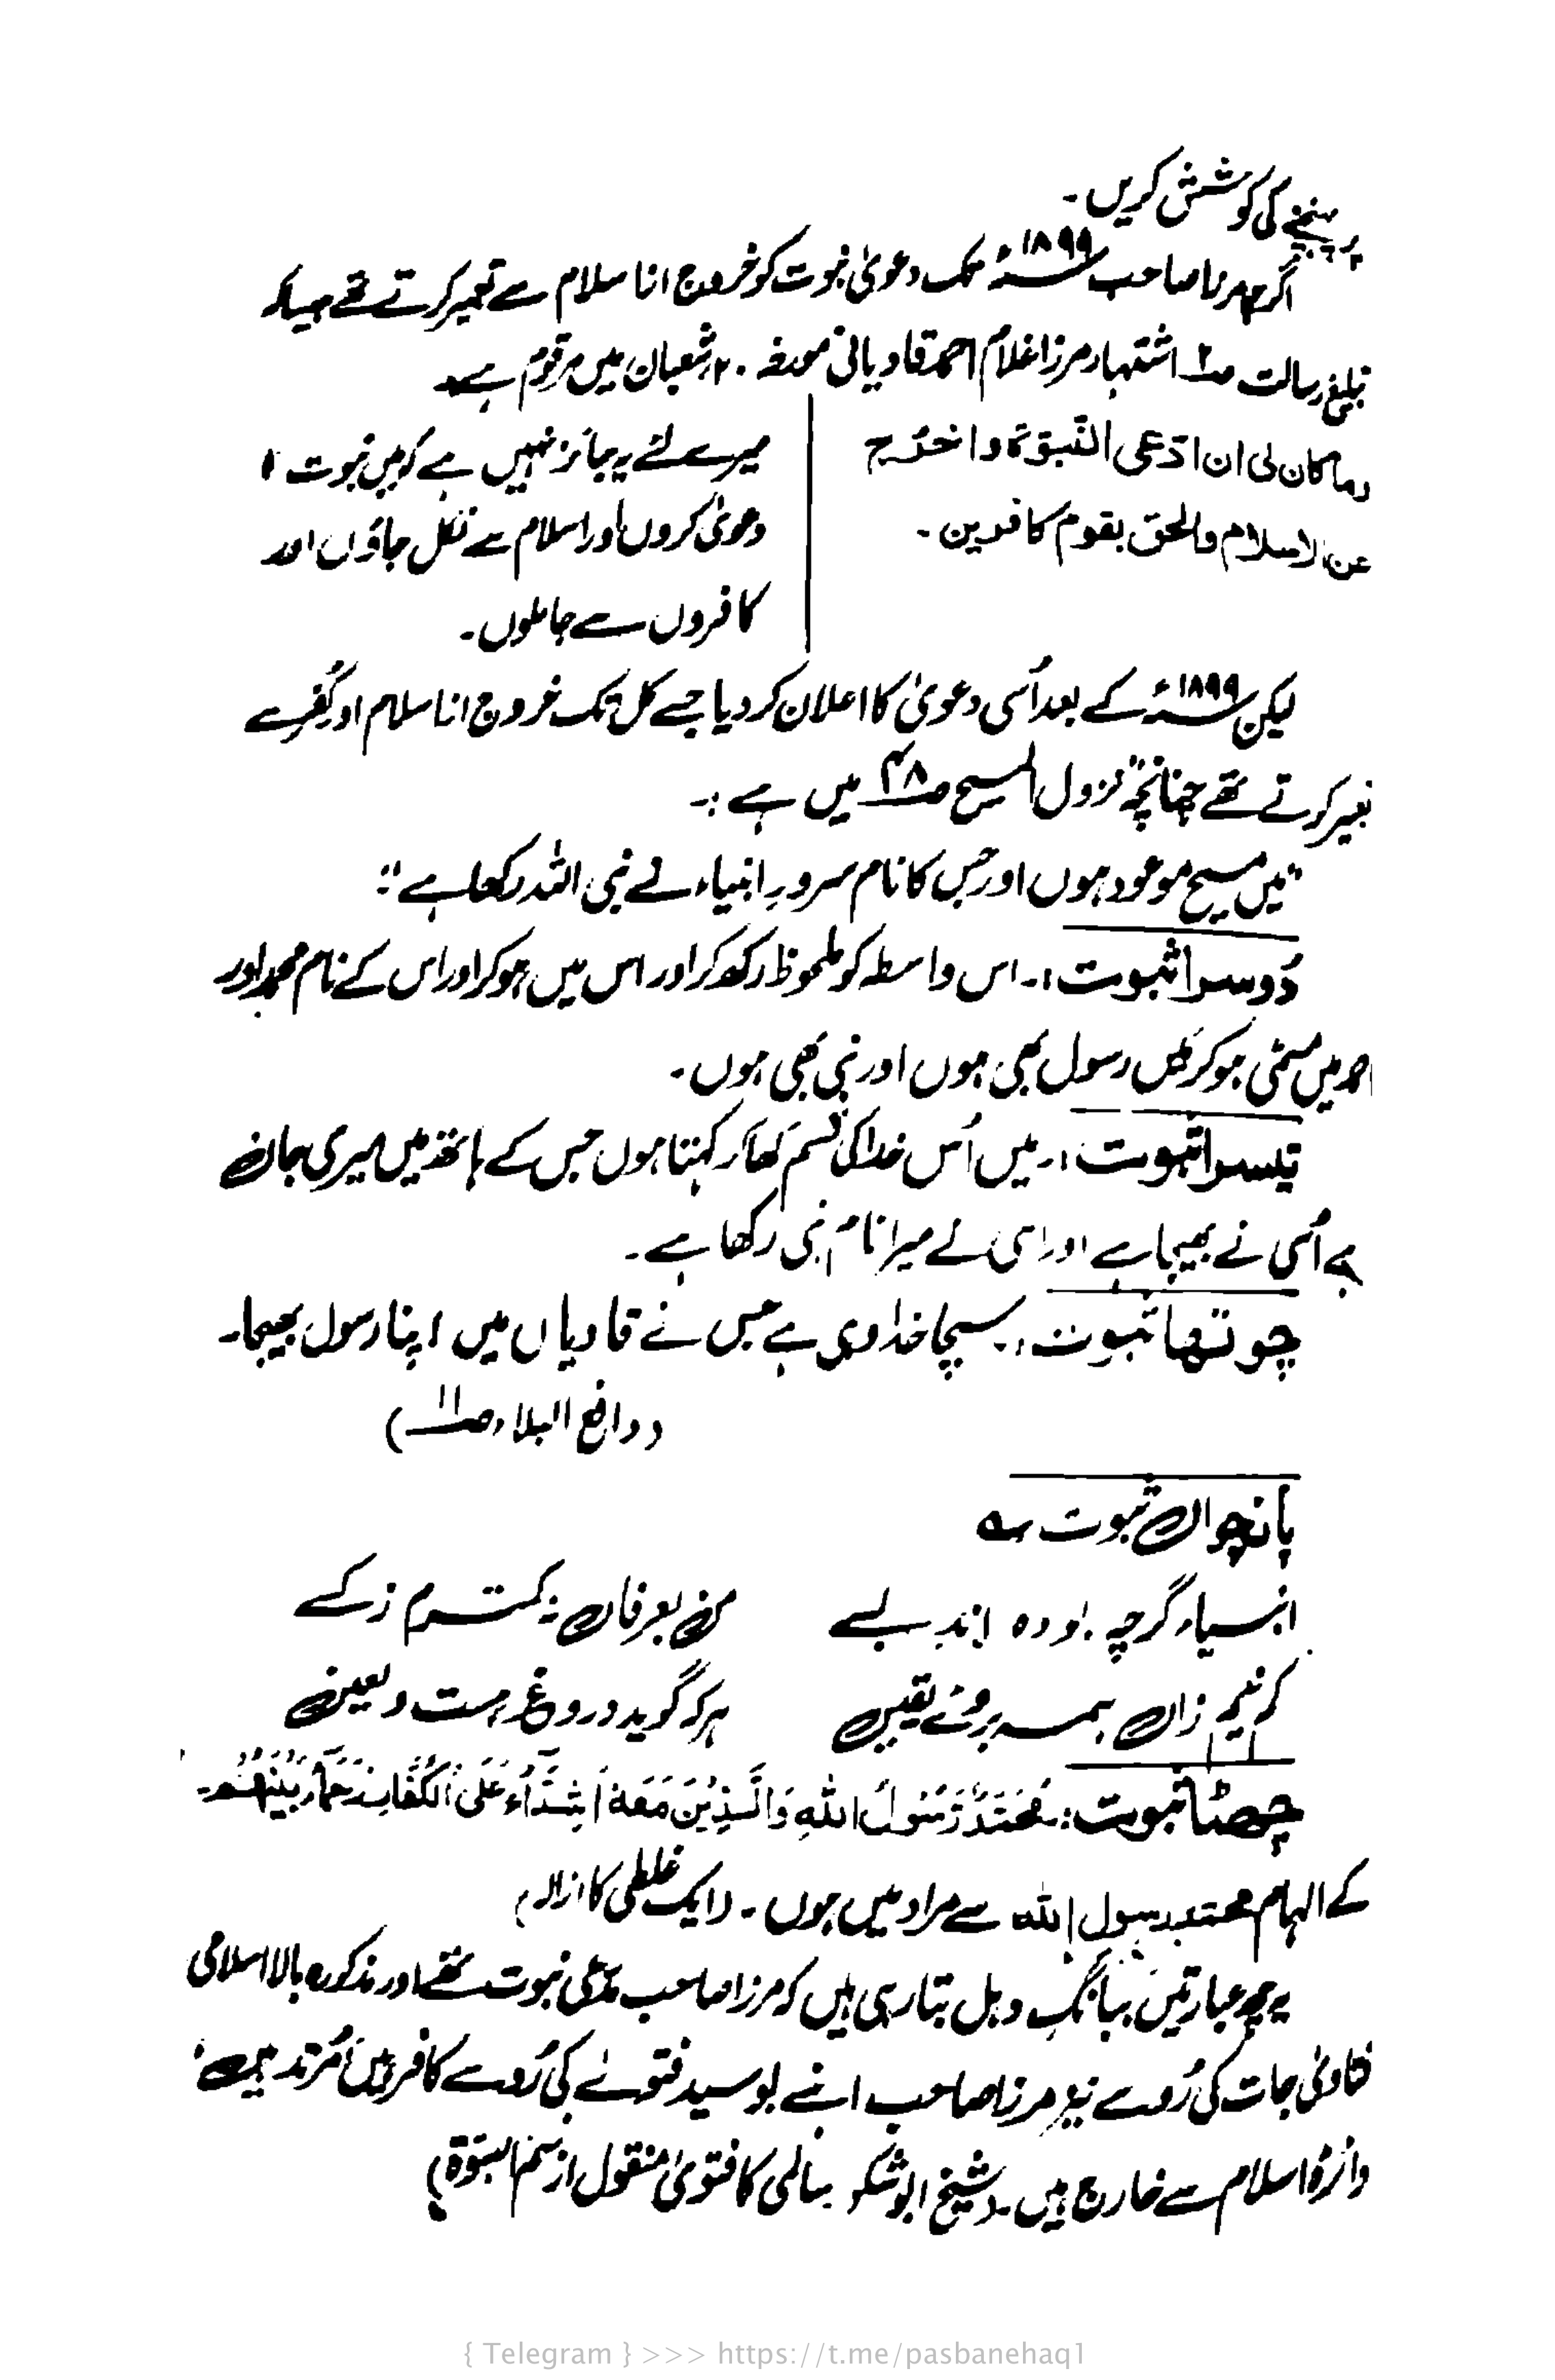 پر پہنچنے کی کوشش کریں۔
اگرچہ مرزا صاحب ۱۸۹۹ء تک دعویٰ نبوت کو خروج از اسلام سے تعبیر کرتے تھے جیسا کہ
تبلیغ رسالت اشتہار مرزا غلام احمد قادیانی مورخہ ۲۰ شعبان میں مرقوم ہے۔
وما کان لی ان ادّعی النّبوّۃ واخرُج
عن الاسلام والحق بقوم کافرین۔
میرے لئے یہ جائز نہیں ہے کہ میں نبوت کا
دعویٰ کروں اور اسلام سے نکل جاؤں اور
کافروں سے جا ملوں۔
لیکن ۱۸۹۹ء کے بعد اُسی دعویٰ کا اعلان کر دیا جسے کل تک خروج از اسلام اور کُفر سے
تعبیر کرتے تھے چنانچہ "نزول المسیح ص۴۸ میں ہے :۔
"میں مسیح موعود ہوں اور جس کا نام سرورِ انبیاء نے نبی اللہ رکھا ہے"
دُوسرا ثبوت :۔ اس واسطہ کو ملحوظ رکھ کر اور اس میں ہو کر اور اس کے نام محمد اور
احمد میں مسمّٰی ہو کر میں رسول بھی ہوں اور نبی بھی ہوں۔
تیسرا ثبوت :۔ میں اُس خدا کی قسم کھا کر کہتا ہوں جس کے ہاتھ میں میری جان
ہے اُسی نے بھیجا ہے اور اسی نے میرا نام نبی رکھا ہے۔
چوتھا ثبوت :۔ سچا خدا وہی ہے جس نے قادیاں میں اپنا رسول بھیجا۔
(دافع البلاء ص۱۱)
پانچواں ثبوت ؎
انبیاء گرچہ بودہ اند بسے من بعرفاں نہ کمترم ز کسے
کم نیم زاں ہمہ بروئے یقیں ہر کہ گوید دروغ ہست و لعین
چھٹا ثبوت :۔ مُحَمَّدٌ رَّسُولُ اللهِ وَالَّذِيْنَ مَعَهٗ اَشِدَّآءُ عَلَى الْكُفَّارِ رُحَمَآءُ بَيْنَهُمْ۔
کے الہام محمد رسول اللہ سے مراد میں ہوں۔ (ایک غلطی کا ازالہ)
یہ چھ عبارتیں ببانگِ دہل بتا رہی ہیں کہ مرزا صاحب مدّعی نبوت تھے اور مذکورہ بالا اسلامی
فتاویٰ جات کی رُو سے نیز مرزا صاحب اپنے بوسید فتوے کی رُو سے کافر ہیں مُرتد ہیں
دائرہ اسلام سے خارج ہیں۔ (شیخ ابو شکور سالمی کا فتویٰ منقول از ختم النبوّۃ)
{ Telegram } >>> https://t.me/pasbanehaq1